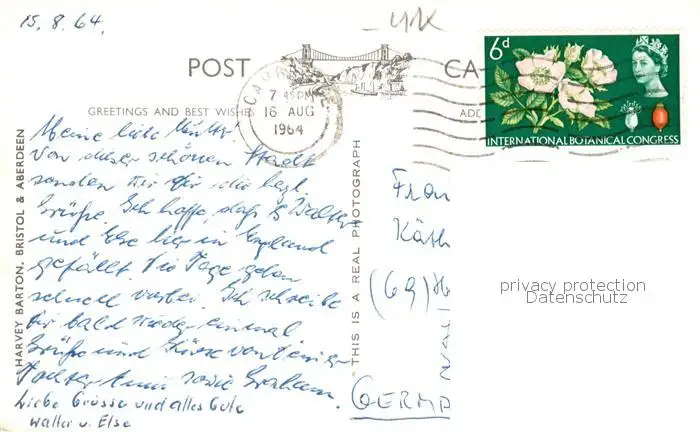 15. 8. 64.
POST CA
GREETINGS AND BEST WISHES
ADE
Meine liebe Mutter.
Von dieser schönen Stadt
senden wir Dir die herzl.
Grüße. Ich hoffe, daß es Walter
und Else hier in England
gefällt. Die Tage gehen
schnell vorbei. Ich schreibe
Dir bald wieder einmal
Grüße und Küsse von Deiner
Tochter sowie Graham.
Liebe Grüsse und alles Gute
Walter u. Else
HARVEY BARTON, BRISTOL & ABERDEEN
THIS IS A REAL PHOTOGRAPH
7 45 PM
16 AUG
1964
6d
INTERNATIONAL BOTANICAL CONGRESS
Frau
Käth
(69)
GERMA
privacy protection
Datenschutz